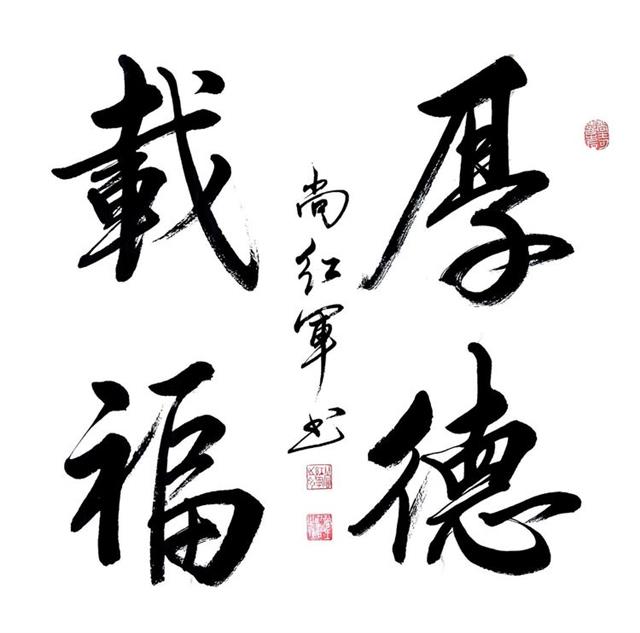 厚德
載福
尚红軍书